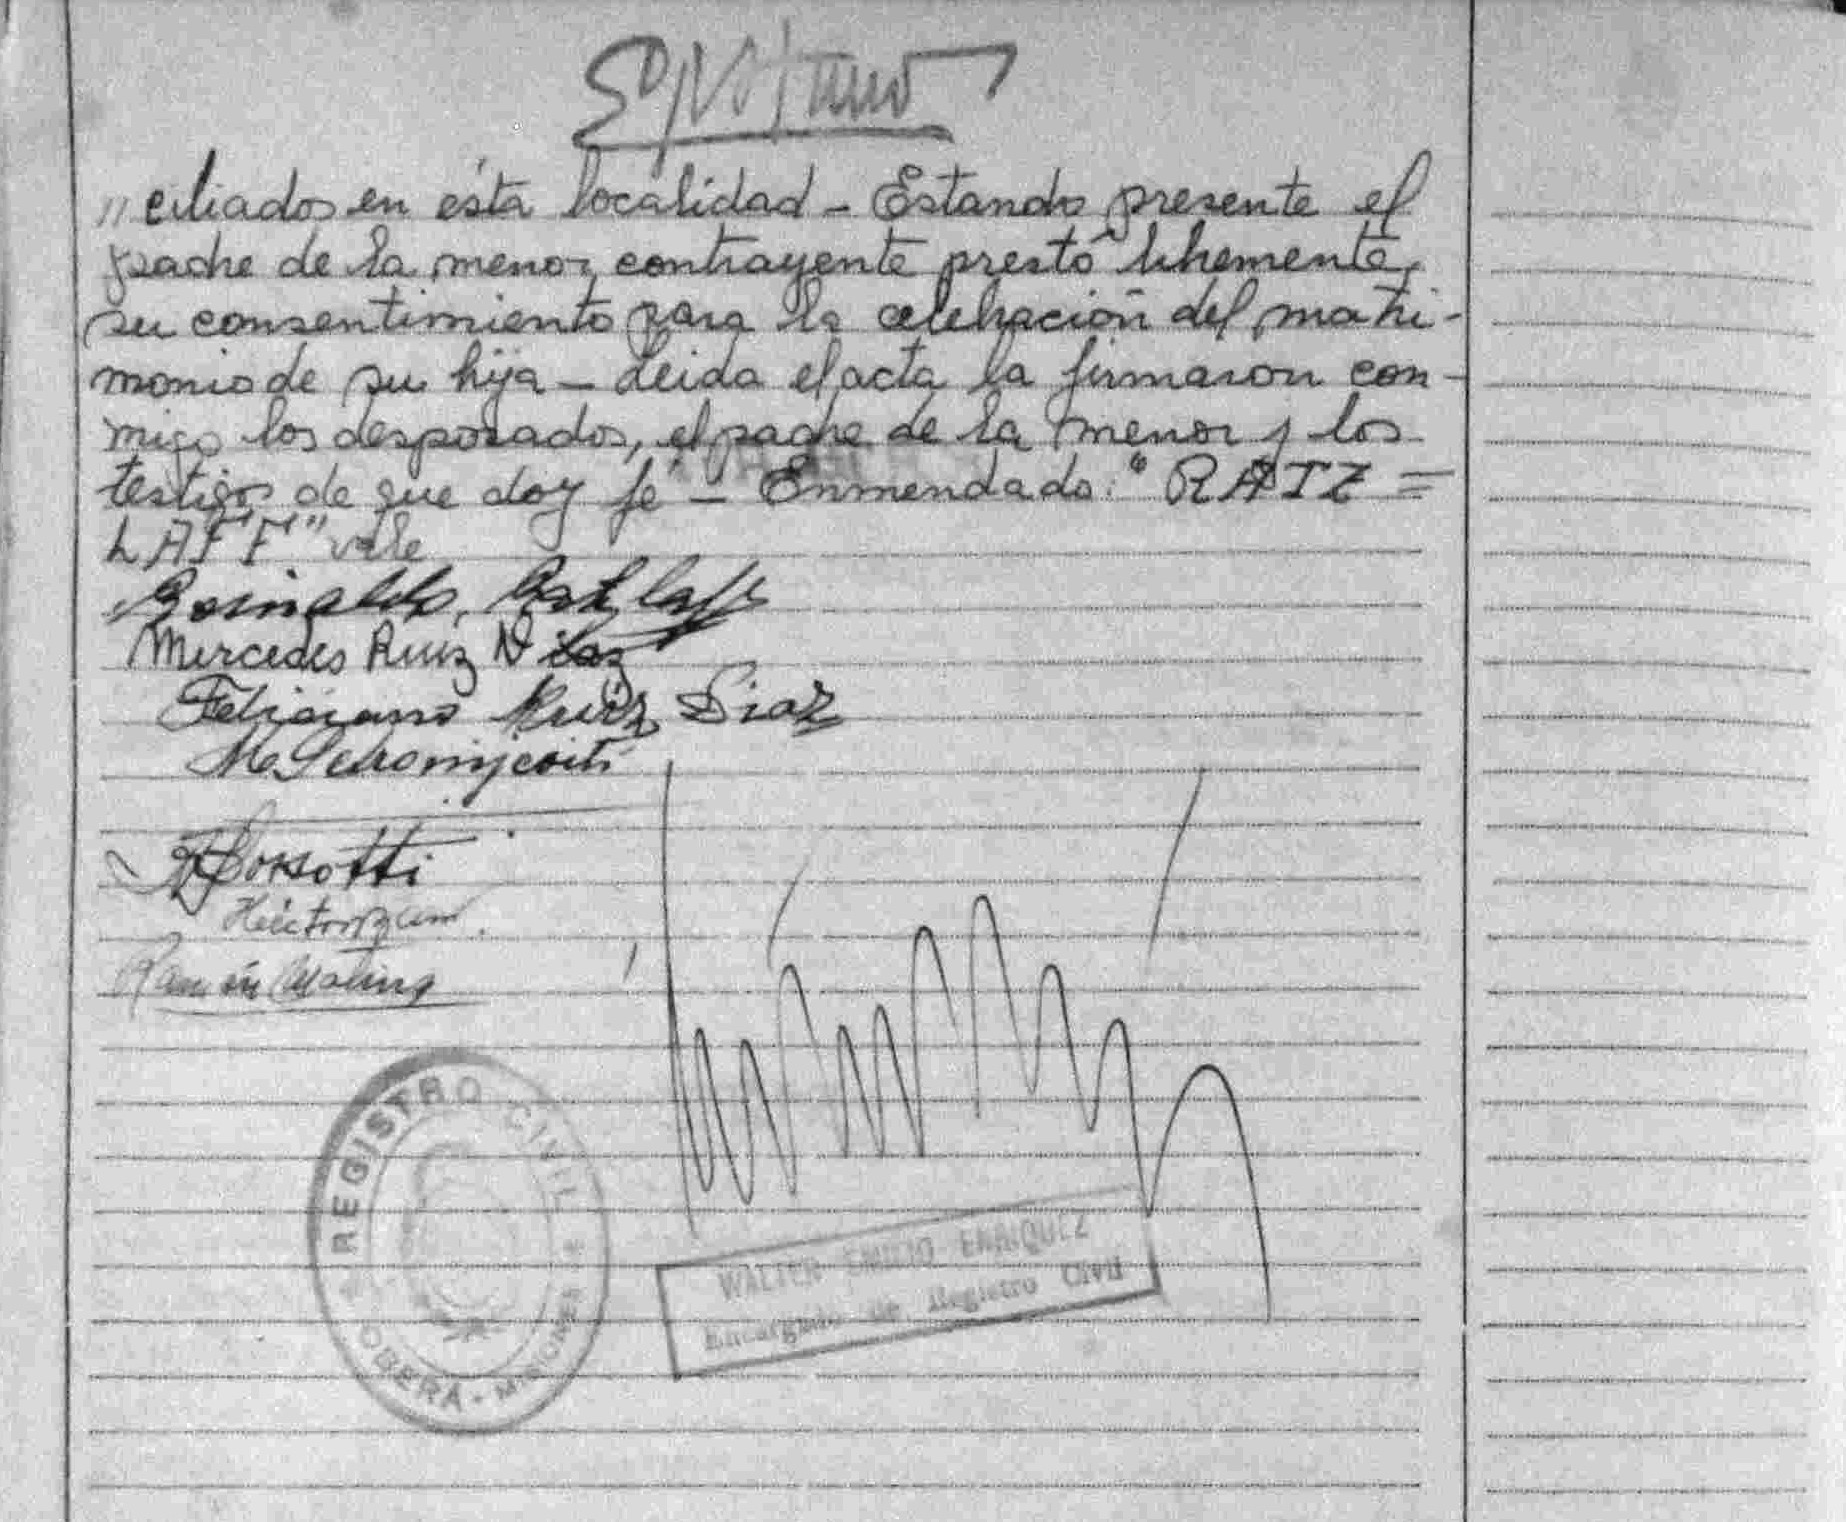 "ciliados en ésta localidad - Estando presente el
padre de la menor contrayente prestó libremente
su consentimiento para la celebración del matri-
monio de su hija - Leida el acta la firmaron con-
migo los desposados, el padre de la menor y los
testigos de que doy fé - Enmendado: "RATZ =
LAFF" vale
Reinaldo, Ratzlaff
Mercedes Ruiz Diaz
Feliciano Ruiz Diaz
Ramón Molina
REGISTRO CIVIL
OBERÁ - MISIONES
WALTER EMILIO ENRIQUEZ
Encargado de Registro Civil